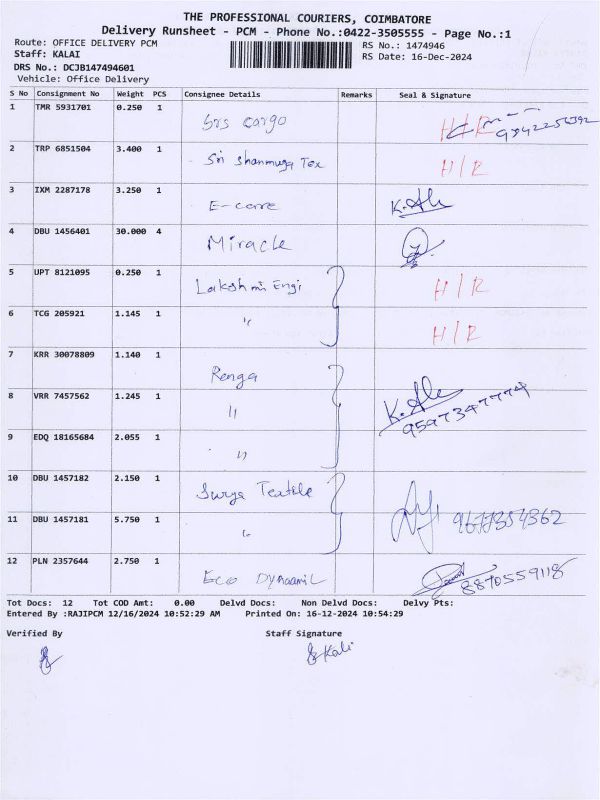 THE PROFESSIONAL COURIERS, COIMBATORE
Delivery Runsheet - PCM - Phone No.:0422-3505555 - Page No.:1
Route: OFFICE DELIVERY PCM
RS No.: 1474946
Staff: KALAI
RS Date: 16-Dec-2024
DRS No.: DCJB147494601
Vehicle: Office Delivery
S No Consignment No Weight PCS Consignee Details Remarks Seal & Signature
1 TMR 5931701 0.250 1 Srs Cargo H/R
2 TRP 6851504 3.400 1 Sri Shanmuga Tex H/R
3 IXM 2287178 3.250 1 E-care K. Ale
4 DBU 1456401 30.000 4 Miracle
5 UPT 8121095 0.250 1 Lakshmi Engi H/R
6 TCG 205921 1.145 1 " H/R
7 KRR 30078809 1.140 1 Renga
8 VRR 7457562 1.245 1 " K. Ale
9597347774
9 EDQ 18165684 2.055 1 "
10 DBU 1457182 2.150 1 Surya Textile
11 DBU 1457181 5.750 1 " 9677354362
12 PLN 2357644 2.750 1 Eco Dynamic 8870559118
Tot Docs: 12 Tot COD Amt: 0.00 Delvd Docs: Non Delvd Docs: Delvy Pts:
Entered By :RAJIPCM 12/16/2024 10:52:29 AM Printed On: 16-12-2024 10:54:29
Verified By Staff Signature
Kali